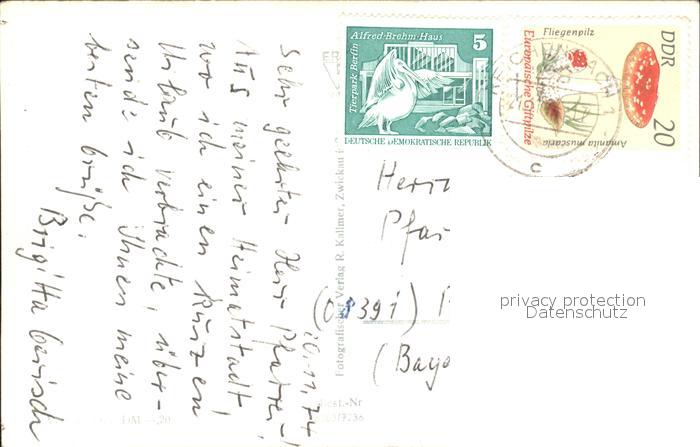 Sehr geehrter Herr Pfarrer!
Aus meiner Heimatstadt,
wo ich einen kurzen
Urlaub verbrachte, über-
sende ich Ihnen meine
besten Grüße.
Brigitta
20.11.74
Fotografischer Verlag R. Kallmer, Zwickau
Best.-Nr
DM -,20
Alfred-Brehm-Haus
5
Tierpark Berlin
DEUTSCHE DEMOKRATISCHE REPUBLIK
Fliegenpilz
DDR
Europäische Giftpilze
Amanita muscaria
20
c
Herrn
Pfar
(08391)
(Baye
privacy protection
Datenschutz